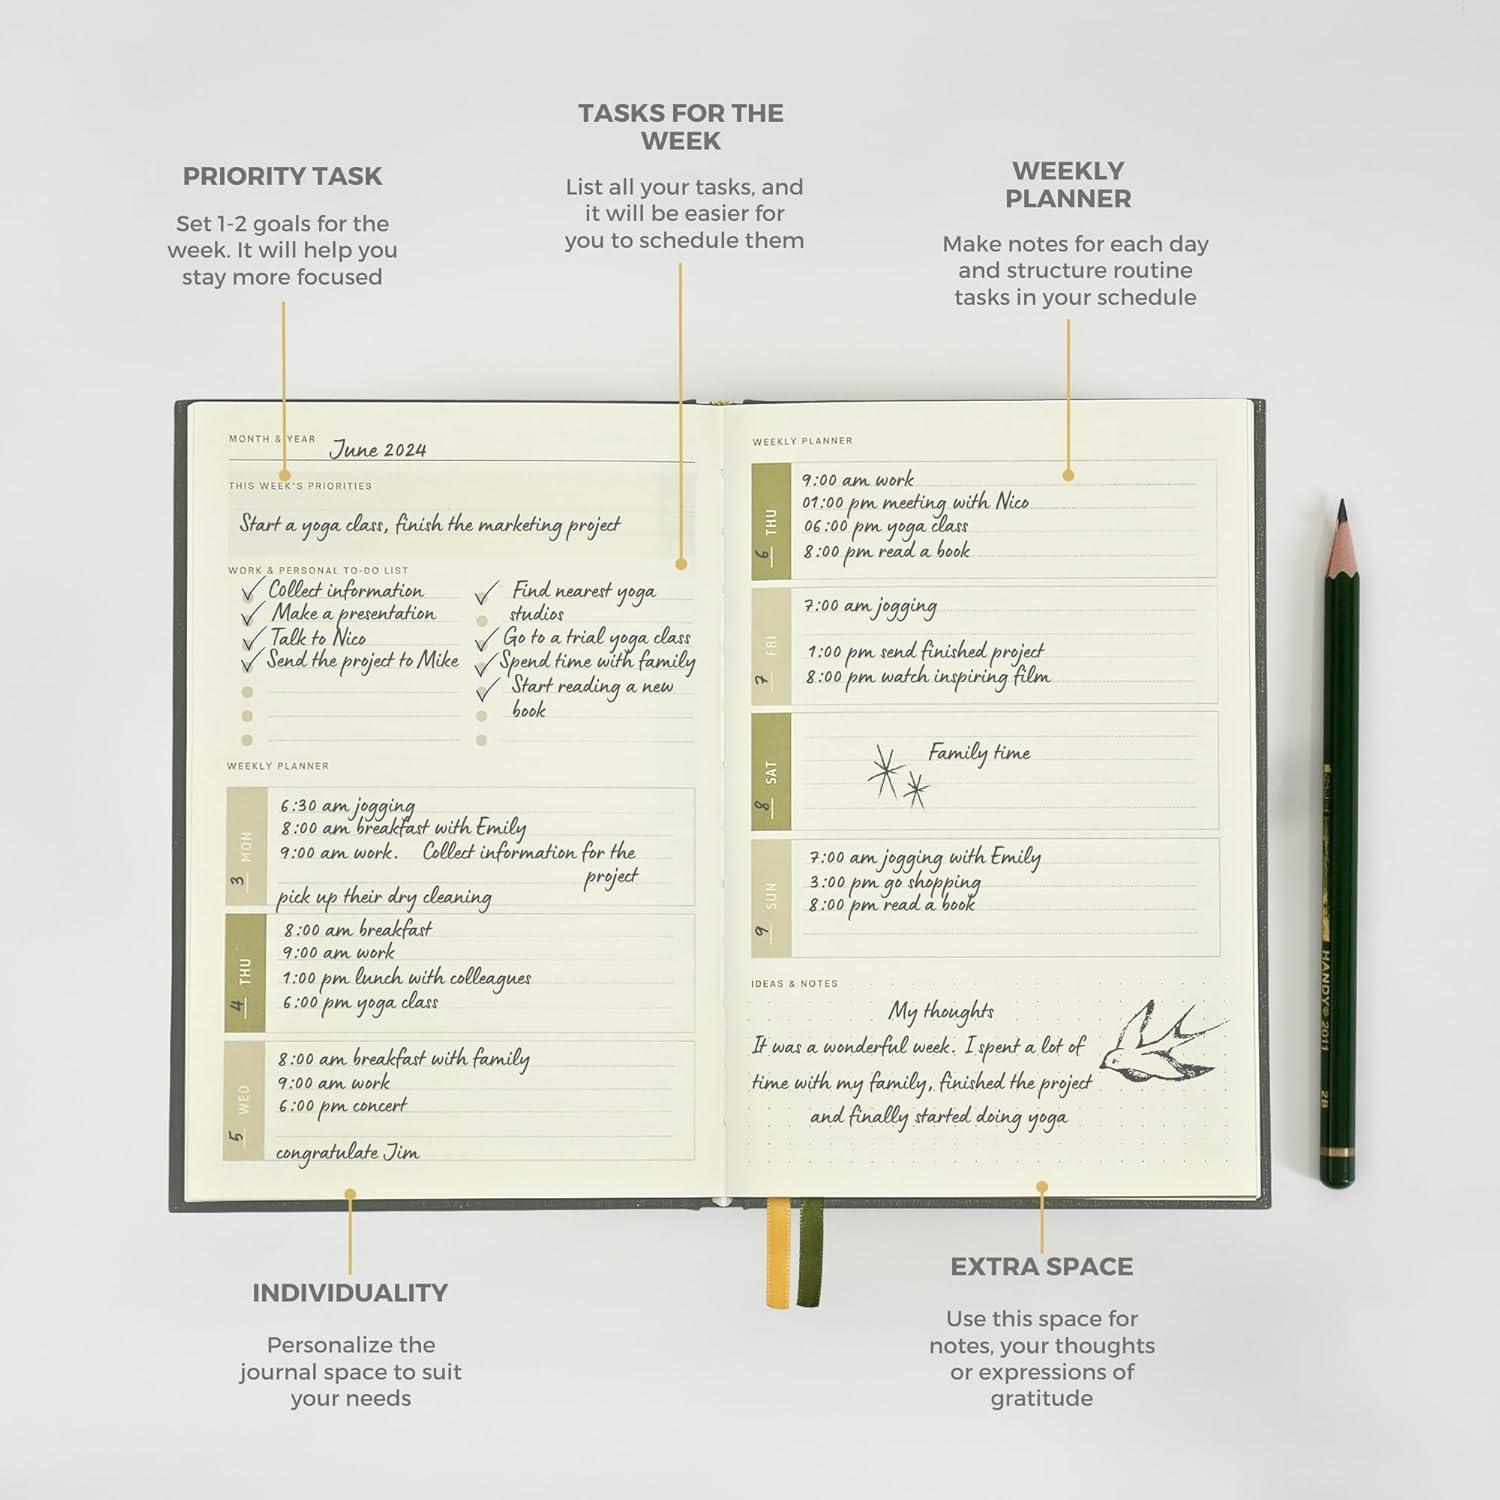 TASKS FOR THE
WEEK
List all your tasks, and
it will be easier for
you to schedule them
PRIORITY TASK
Set 1-2 goals for the
week. It will help you
stay more focused
WEEKLY
PLANNER
Make notes for each day
and structure routine
tasks in your schedule
MONTH & YEAR June 2024
THIS WEEK'S PRIORITIES
Start a yoga class, finish the marketing project
WORK & PERSONAL TO-DO LIST
Collect information
Make a presentation
Talk to Nico
Send the project to Mike
Find nearest yoga
studios
Go to a trial yoga class
Spend time with family
Start reading a new
book
WEEKLY PLANNER
3 MON
6:30 am jogging
8:00 am breakfast with Emily
9:00 am work. Collect information for the
project
pick up their dry cleaning
4 THU
8:00 am breakfast
9:00 am work
1:00 pm lunch with colleagues
6:00 pm yoga class
5 WED
8:00 am breakfast with family
9:00 am work
6:00 pm concert
congratulate Jim
WEEKLY PLANNER
6 THU
9:00 am work
01:00 pm meeting with Nico
06:00 pm yoga class
8:00 pm read a book
7 FRI
7:00 am jogging
1:00 pm send finished project
8:00 pm watch inspiring film
8 SAT
Family time
9 SUN
7:00 am jogging with Emily
3:00 pm go shopping
8:00 pm read a book
IDEAS & NOTES
My thoughts
It was a wonderful week. I spent a lot of
time with my family, finished the project
and finally started doing yoga
HANDY® 2011 2B
INDIVIDUALITY
Personalize the
journal space to suit
your needs
EXTRA SPACE
Use this space for
notes, your thoughts
or expressions of
gratitude